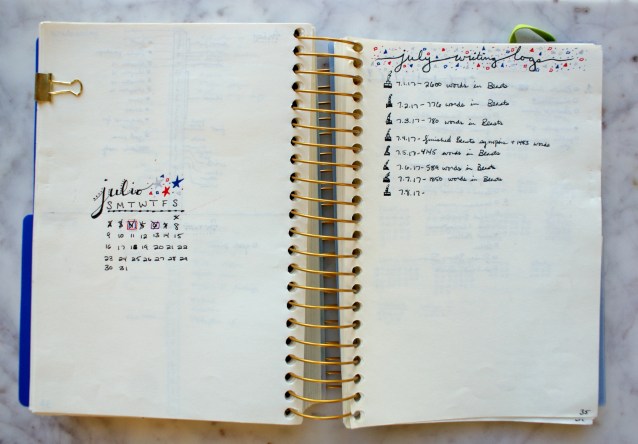 julio
S M T W T F S
8
9 10 11 12 13 14 15
16 17 18 19 20 21 22
23 24 25 26 27 28 29
30 31
july writing logs
7.1.17 - 2600 words in Beasts
7.2.17 - 776 words in Beasts
7.3.17 - 780 words in Beasts
7.4.17 - finished Beasts synopsis + 1483 words
7.5.17 - 4145 words in Beasts
7.6.17 - 589 words in Beasts
7.7.17 - 1050 words in Beasts
7.8.17 -
35